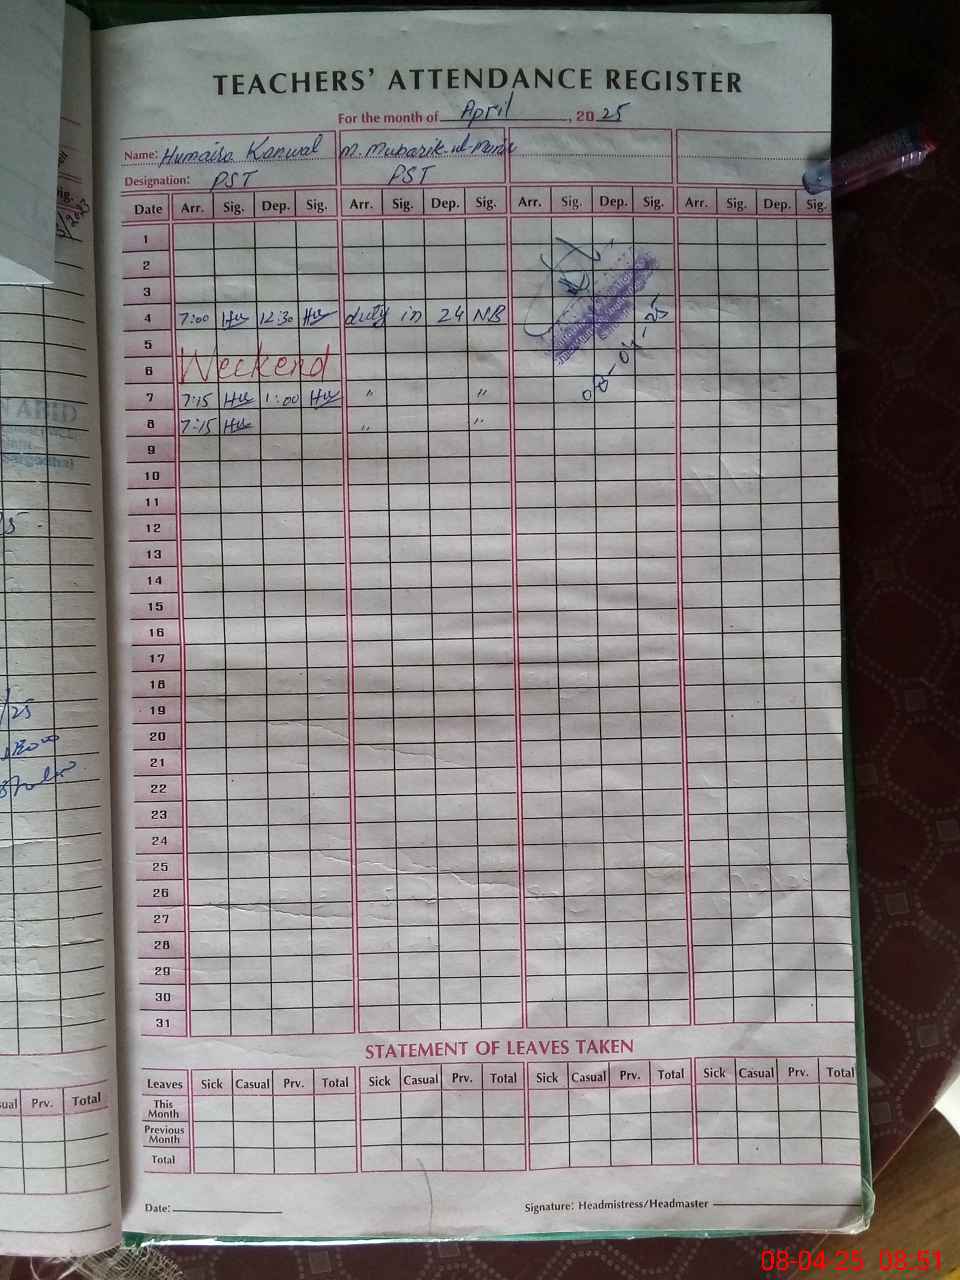 TEACHERS' ATTENDANCE REGISTER
For the month of April, 2025
Name: Humaira Kanwal M. Mubarik
Designation: PST PST
Date Arr. Sig. Dep. Sig. Arr. Sig. Dep. Sig. Arr. Sig. Dep. Sig. Arr. Sig. Dep. Sig.
1
2
3
4 7:00 12:30 duty in 24 NB
5
Weekend
6
7 7:15 1:00 " "
8 7:15 " "
08-04-25
9
10
11
12
13
14
15
16
17
18
19
20
21
22
23
24
25
26
27
28
29
30
31
STATEMENT OF LEAVES TAKEN
Leaves Sick Casual Prv. Total Sick Casual Prv. Total Sick Casual Prv. Total Sick Casual Prv. Total
This Month
Previous Month
Total
Date:
Signature: Headmistress/Headmaster
Prv. Total
08-04-25 08:51